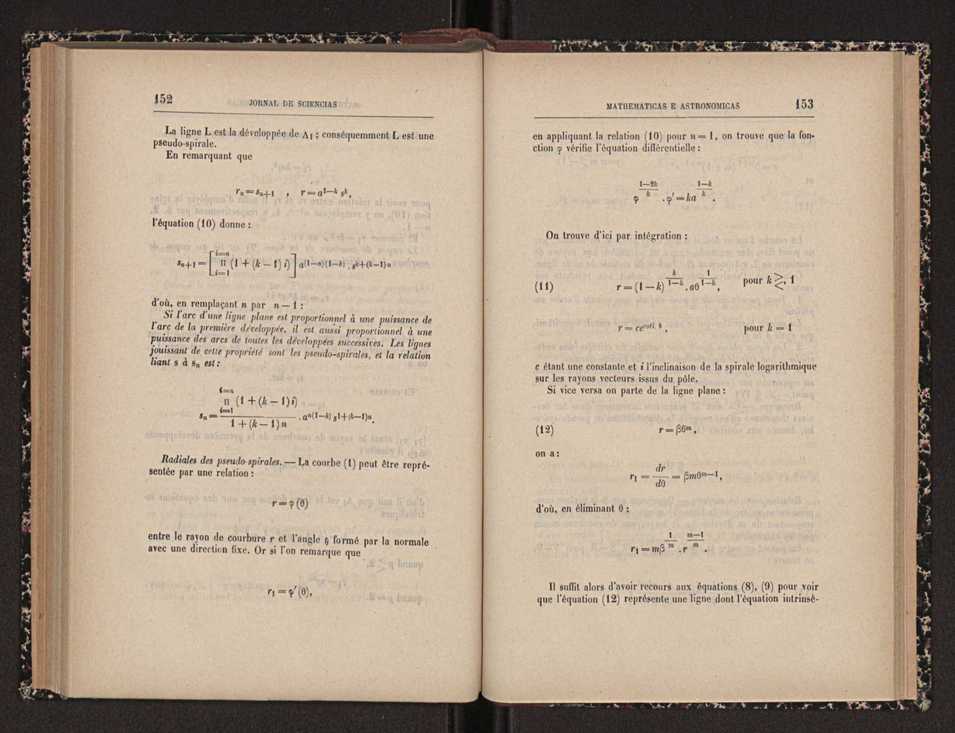 152
JORNAL DE SCIENCIAS
La ligne L est la développée de Λ1 ; conséquemment L est une
pseudo-spirale.
En remarquant que
rₙ = sₙ₊₁ , r = a^{1—k} s^k,
l'équation (10) donne :
sₙ₊₁ = [ Π_{i=1}^{i=n} (1 + (k — 1) i) ] a^{(1—n)(1—k)} . s^{k+(k—1)n}
d'où, en remplaçant n par n — 1 :
Si l'arc d'une ligne plane est proportionnel à une puissance de
l'arc de la première développée, il est aussi proportionnel à une
puissance des arcs de toutes les développées successives. Les lignes
jouissant de cette propriété sont les pseudo-spirales, et la relation
liant s à sₙ est :
sₙ = \frac{Π_{i=1}^{i=n} (1 + (k — 1) i)}{1 + (k — 1) n} . a^{n(1—k)} s^{1+(k—1)n}.
Radiales des pseudo-spirales. — La courbe (1) peut être repré-
sentée par une relation :
r = φ (θ)
entre le rayon de courbure r et l'angle θ formé par la normale
avec une direction fixe. Or si l'on remarque que
r₁ = φ' (θ),
MATHEMATICAS E ASTRONOMICAS
153
en appliquant la relation (10) pour n = 1, on trouve que la fon-
ction φ vérifie l'équation différentielle :
φ^{\frac{1—2k}{k}} . φ' = ka^{\frac{1—k}{k}} .
On trouve d'ici par intégration :
(11) r = (1 — k)^{\frac{k}{1—k}} . aθ^{\frac{1}{1—k}}, pour k ≷ 1
r = ce^{cot i . θ}, pour k = 1
c étant une constante et i l'inclinaison de la spirale logarithmique
sur les rayons vecteurs issus du pôle.
Si vice versa on parte de la ligne plane :
(12) r = βθ^m,
on a :
r₁ = \frac{dr}{dθ} = βmθ^{m—1},
d'où, en éliminant θ :
r₁ = mβ^{\frac{1}{m}} . r^{\frac{m—1}{m}} .
Il suffit alors d'avoir recours aux équations (8), (9) pour voir
que l'équation (12) représente une ligne dont l'équation intrinsè-